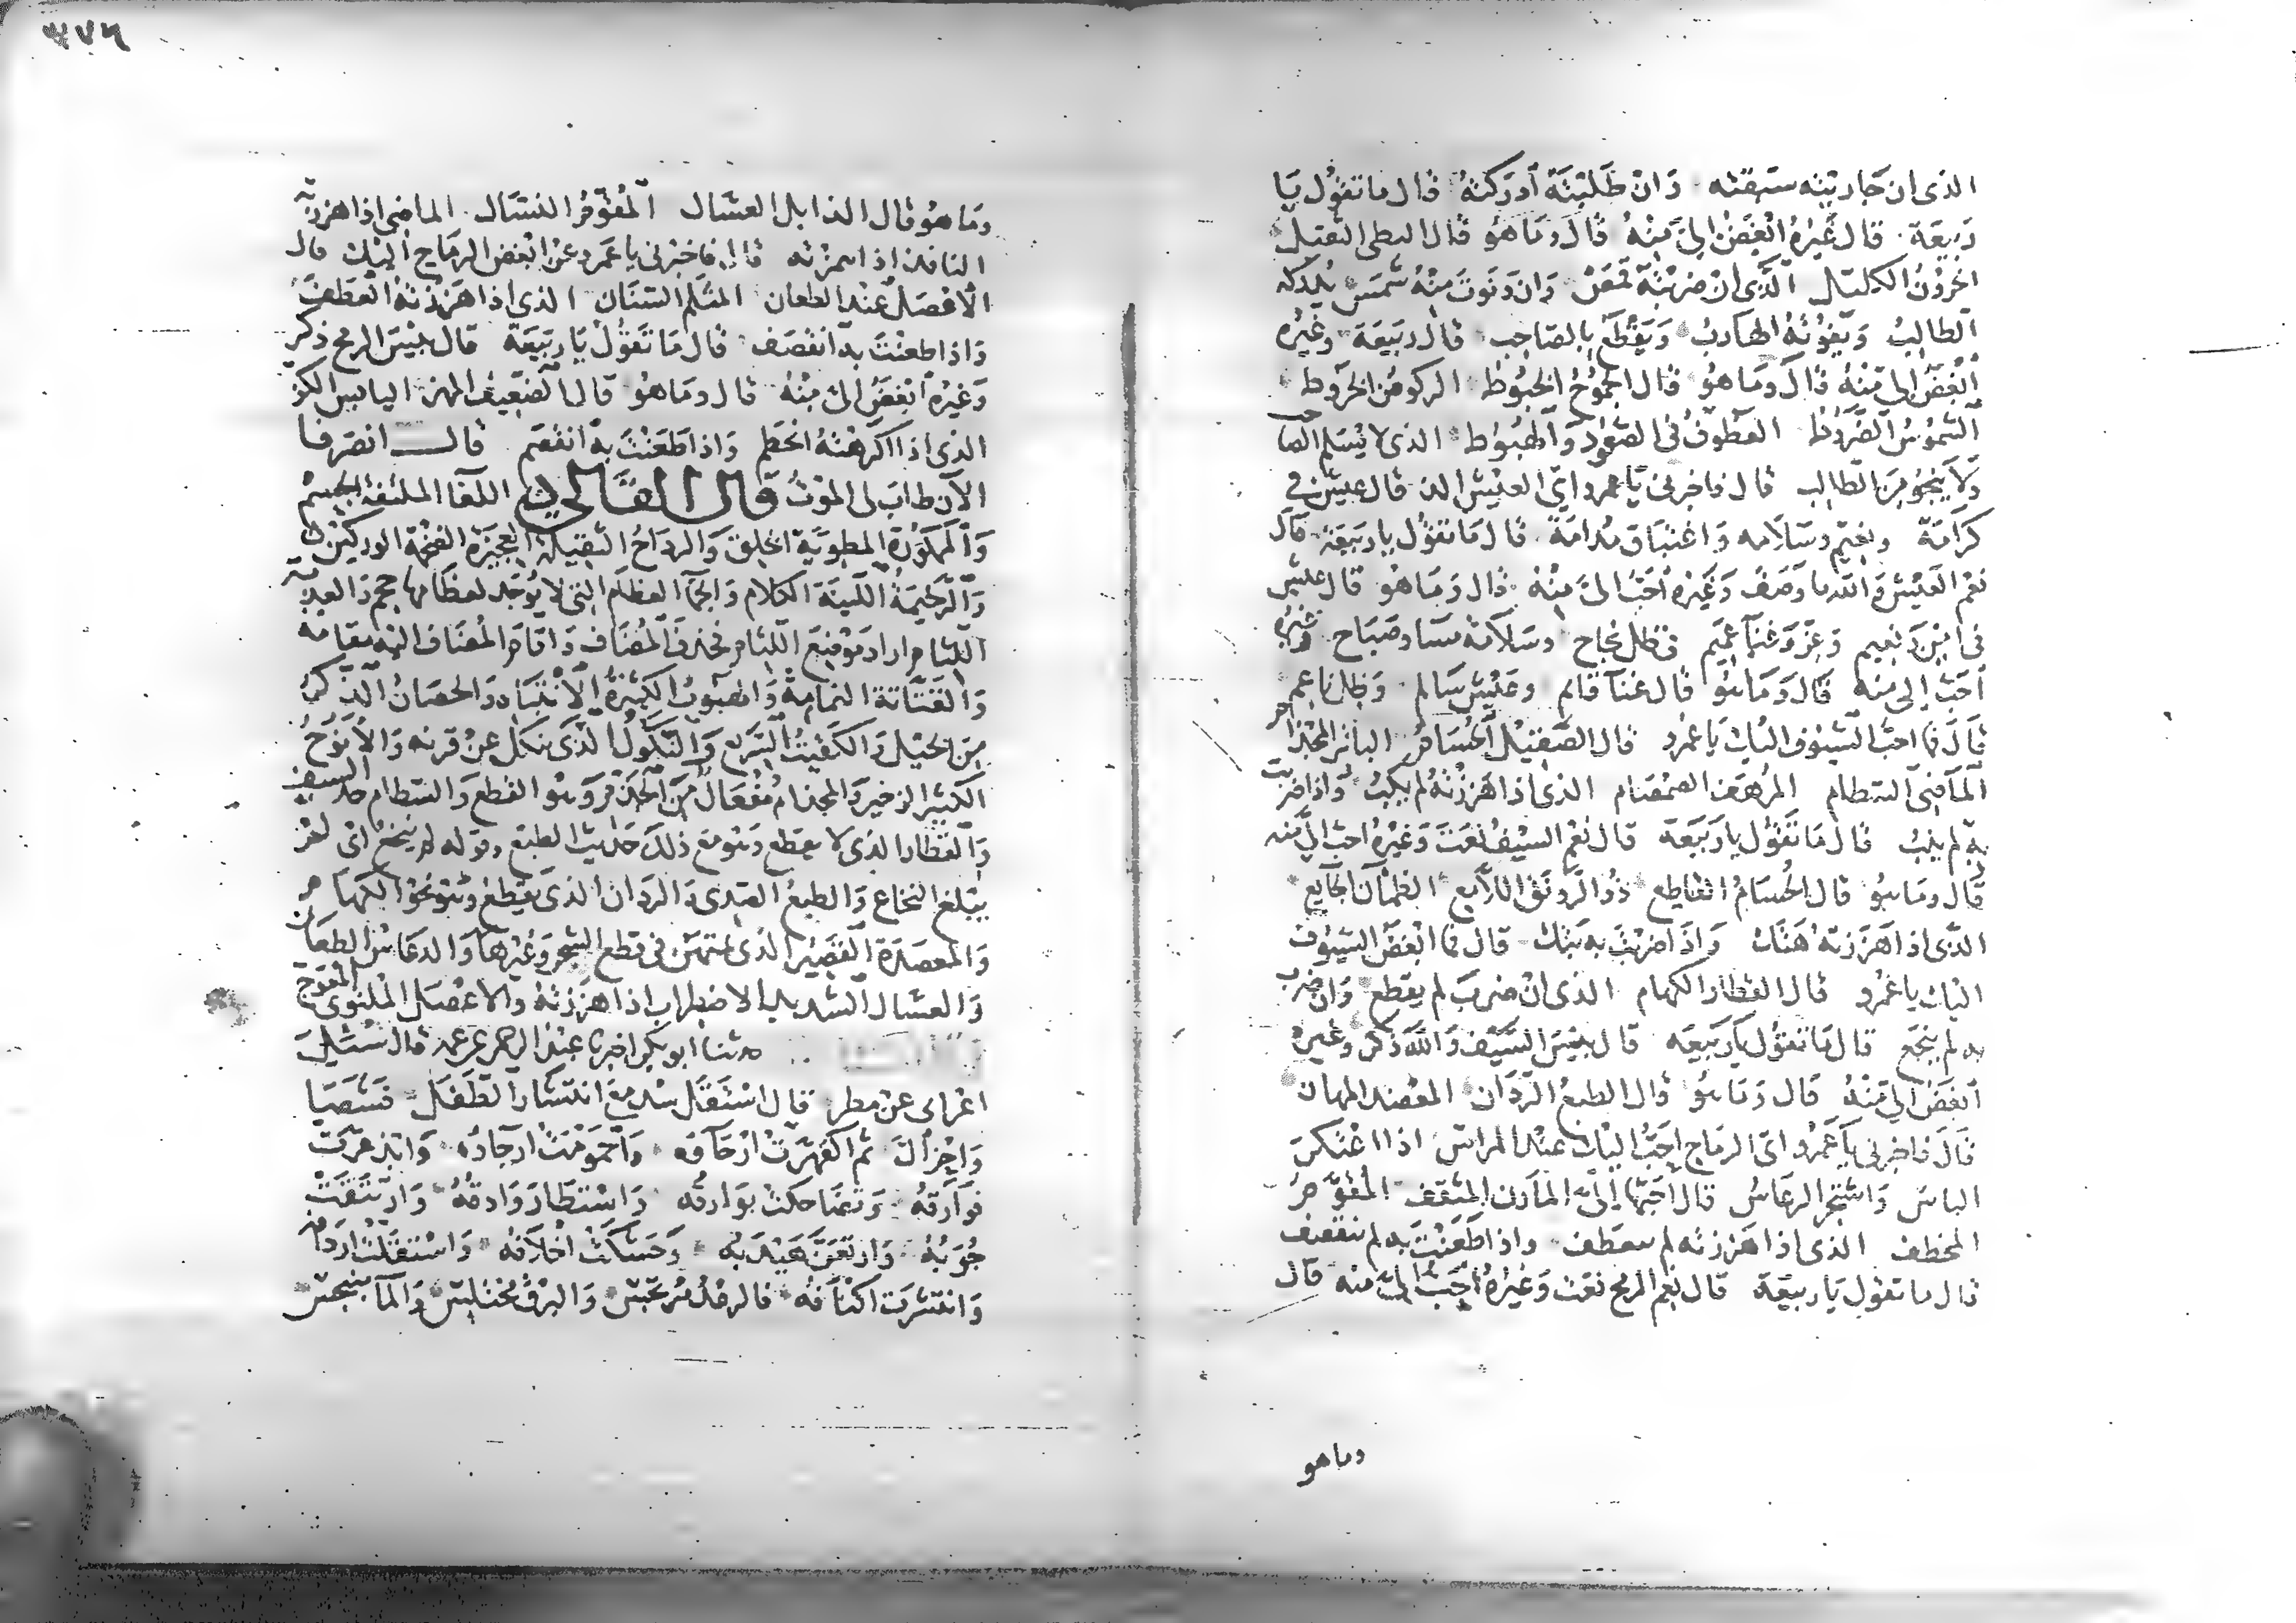 الذى ان جاريته سبقته وَان طَلبْتَهُ أدرَكتَهُ قال ما تقوُل يَا
رَبيعَة قال غَيْرهُ ابْغَضُ الىَّ مِنْهُ قال وَمَا هوَ قال البطى الثقيل
الحَرُونُ الكليل الّذِى ان ضَرَبْتَهُ قمَصَ وَان دَنَوتَ مِنهُ شَمَسَ يُدركه
الطالِبُ وَيَفوُتهُ الهَاربُ وَيَقْطَعُ بالصَاحِب قال رَبيعَة وغَيْره
أبْغَضُ الى مِنْهُ قال وَمَا هُوَ قال الجَموُحُ الخَبُوطُ الركوضُ الخروط
الشمُوسُ الضَرُوطُ القطُوفُ فى الصُعُودِ وَالهبُوط الذى لا يُسَلم الصاحب
وَلا يَنْجُو مِنَ الطالِب قال فاخبرنى يَا عمرو اىُّ العَيْش الذ قال عيش فى
كرَامَة ونعيْم وسَلاَمه وَاغتبَاق مُدامَة قال مَا تقوُل يا رَبيعَة قال
نعْمَ العَيْش وَالله ما وَصَفَ وَغَيْره أحَبُّ الىَّ مِنْهُ قال وَمَا هوَ قال عَيْش
فى امْنٍ وَنعِيم وَعِزٍّ وَغِنًا عَمِيْم فى ظل نجاح وسَلامَة مسَا وصَبَاح وغَيْرهُ
أحَبُّ الى مِنه قال وَمَا هُوَ قال غنًا قائم وعَيْش سَالم وَظِل ناعِم
قالَ فما احبّ السّيُوف اليْك يَا عَمْرو قال الصَّقِيْل الحُسَامُ الباتر المجْذامُ
المَاضِى السطام المُرْهَفُ الصَمْصَام الذى اذا هَزَزتَهُ لم يكبُ وَاذا ضربت
بهِ لم ينبُ قال مَا تَقوُل يا رَبيعَة قال نعْمَ السَيْفُ نَعَتَ وَغَيْرُهُ احبّ الىَّ منه
قال ومَا هُو قال الحُسَامُ القاطِع ذُو الرَونَق اللاَّمع الظمْآن الجَايع
الّذى اذا هَزَزتَهُ هَتَك وَاذَا ضرَبْتَ بهِ بَتَك قال فما ابْغَضُ السّيُوف
اليْك يا عَمْرو قال الفُطَار الكهَام الذى ان ضربَ لم يقطَع وَان ضرب
به لم يَنْخَعْ قال مَا تقوُل يا رَبيعَة قال بئسَ السَّيْف وَالله ذكر وغيرهُ
أبغَضُ الىّ مِنْهُ قال وَمَا هُو قال الطبِعُ الدّدَان المعْضد المهَان
قالَ فاخبرنى يَا عَمْرو اىّ الرمَاح احَبُّ اليْك عِنْد المراس اذا اعْتكرَ
الباس وَاشتجر الدعَاسُ قال احَبّهَا إلىَّ المارن المثقف المُقوَّم
المخطف الذى اذا هَزَزته لم ينعَطف وَاذا طَعَنْتَ به لم ينقَصِف
قال ما تقوُل يَا ربيعَة قال نِعْمَ الرمحُ نعَت وَغَيْرُهُ أحَبُّ الىَّ منه قال
وما هو
٣٧٦
وَمَا هُوَ قال الذابل العسّال المُقوَّم النسّال الماضِى اذا هززته
النافذ اذا همزته قال فاخبرنى يا عَمرو عن ابْغض الرمَاح اليْك قال
الأعْصَلُ عِنْد الطعان المُثَلّم السّنَان الذى اذا هَزَزتَهُ انعَطَفَ
وَاذا طعنْتَ به انقَصَفَ قال مَا تَقوُل يَا رَبيعَة قال بئسَ الرمح ذكر
وَغَيْرهُ أبغَضُ الىّ مِنْهُ قال ومَا هُوَ قال الضَّعيفُ المَهزّ اليابس الكزّ
الذى اذا اكرَهْتَهُ انحَطم وَاذا طَعَنْتَ بهِ انقصَم قال انصَرفا
الآن طابَ لى الموْتُ قال القالى اللفّا الملتفة الجسْم
وَالمَمْكوُرَة المطويَّة الخلق وَالرداحُ الثقيْلَة العَجِيزَة الضخمَة الوركيْن
وَالرّخيمَةُ اللّينَة الكلام وَالجمّا العظام التى لا يوُجَد لعظامها حجم وَالعذبة
اللثام ارادَ مَوْضِعَ اللّثام فحذفَ المُضَافَ وَاقامَ المُضَاف اليْه مقامَهُ
وَالقَتّاتَة النمامَةُ وَالهبُوبُ الكثيْرَة الأنتبَاه وَالحصَانُ الذكر
مِنَ الخيل وَالكفيتُ السّرَيع وَالنّكولُ الّذى نكل عنْ قرنه وَالأنُوحُ
الكثيْر الزحير وَالمجذام مِفْعَالٌ مِنَ الجذم وَهُو القطع وَالسّطام حدّ السيف
وَالفُطار الذى لا يقطع وَهُو مَعَ ذلكَ حَديث الطبْع وقوله لم ينخع اىْ لم
يبْلغ النخاع وَالطبعُ الصَدِى وَالددَان الذى لا يقطع وَهُو نحو الكهَام
وَالمعضد القَصِيْر الذى يمتهَن فى قطع الشجر وَغيْرها وَالدعَاسُ الطعان
وَالعسّال الشديد الاضطراب اذا هَزَزتَهُ وَالاعْصَل المُلتوى المعْوَجّ
حدثنا ابو بكر اخبرنا عبْد الرحمن عن عمه قال سُئِلَ
اعرابى عن مطر قال اسْتَقَلّ سُد مع انتشار الطّفَل فشصَا
وَاحْزَألَّ ثم اكفَهَرّت ارْجَآؤه وَاحْمَوْمَتْ ارحَآؤه وَابذعَرّت
فوَارقهُ وَتضَاحكت بوَارقُه وَاسْتطَارَ وَادقُهُ وَارتتَقَتْ
جُوَبُهُ وَارتعَنَ هَيْدَبُه وَحَشكَتْ أخلاَفُه وَاسْتَقَلّتْ اردَافه
وَانتشرَت اكْنَافُه فالرعْدُ مُرتجس وَالبرْقُ مُختَلِس وَالمَآ مُنبجس